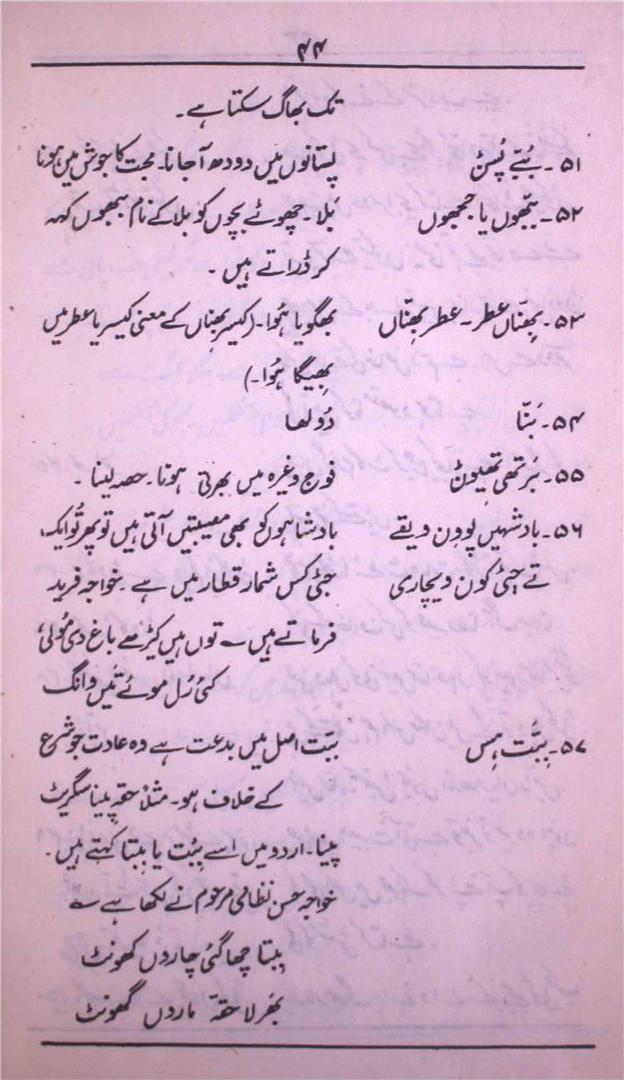 ۴۴
تک بھاگ سکتا ہے۔
۵۱۔ بُتّے پُسنْ پستانوں میں دودھ آ جانا۔ محبت کا جوش میں ہونا
۵۲۔ بَبّھوں یا جُمجھوں بَلا۔ چھوٹے بچوں کو بلا کے نام ببھوں کہہ
کر ڈراتے ہیں۔
۵۳۔ بِھنّاں عطر۔ عطر بِھنّاں بھگویا ہوا۔ (کیسر بھناں کے معنی کیسر یا عطر میں
بھیگا ہُوا۔)
۵۴۔ بَنّا دُولھا
۵۵۔ بَر تھی تھیوݨ فوج وغیرہ میں بھرتی ہونا۔ حصہ لینا۔
۵۶۔ بادشہیں پوون دیقے بادشاہوں کو بھی مصیبتیں آتی ہیں تو پھر تُو ایک
تے جٹی کون ویچاری جٹی کس شمار قطار میں ہے۔ خواجہ فرید
فرماتے ہیں ؎ توں ہیں کیڑھے باغ دی مُولی
کئی رُل موئے تیں دانگ
۵۷۔ بِبّت ہِس بِبّت اصل میں بدعت ہے وہ عادت جو شرع
کے خلاف ہو۔ مثلاً حقہ پینا سگریٹ
پینا۔ اردو میں اسے بِپت یا بپتا کہتے ہیں۔
خواجہ حسن نظامی مرحوم نے لکھا ہے ؎
بپتا چھا گئی چاروں کھونٹ
بھر لا حقہ ماروں گھونٹ